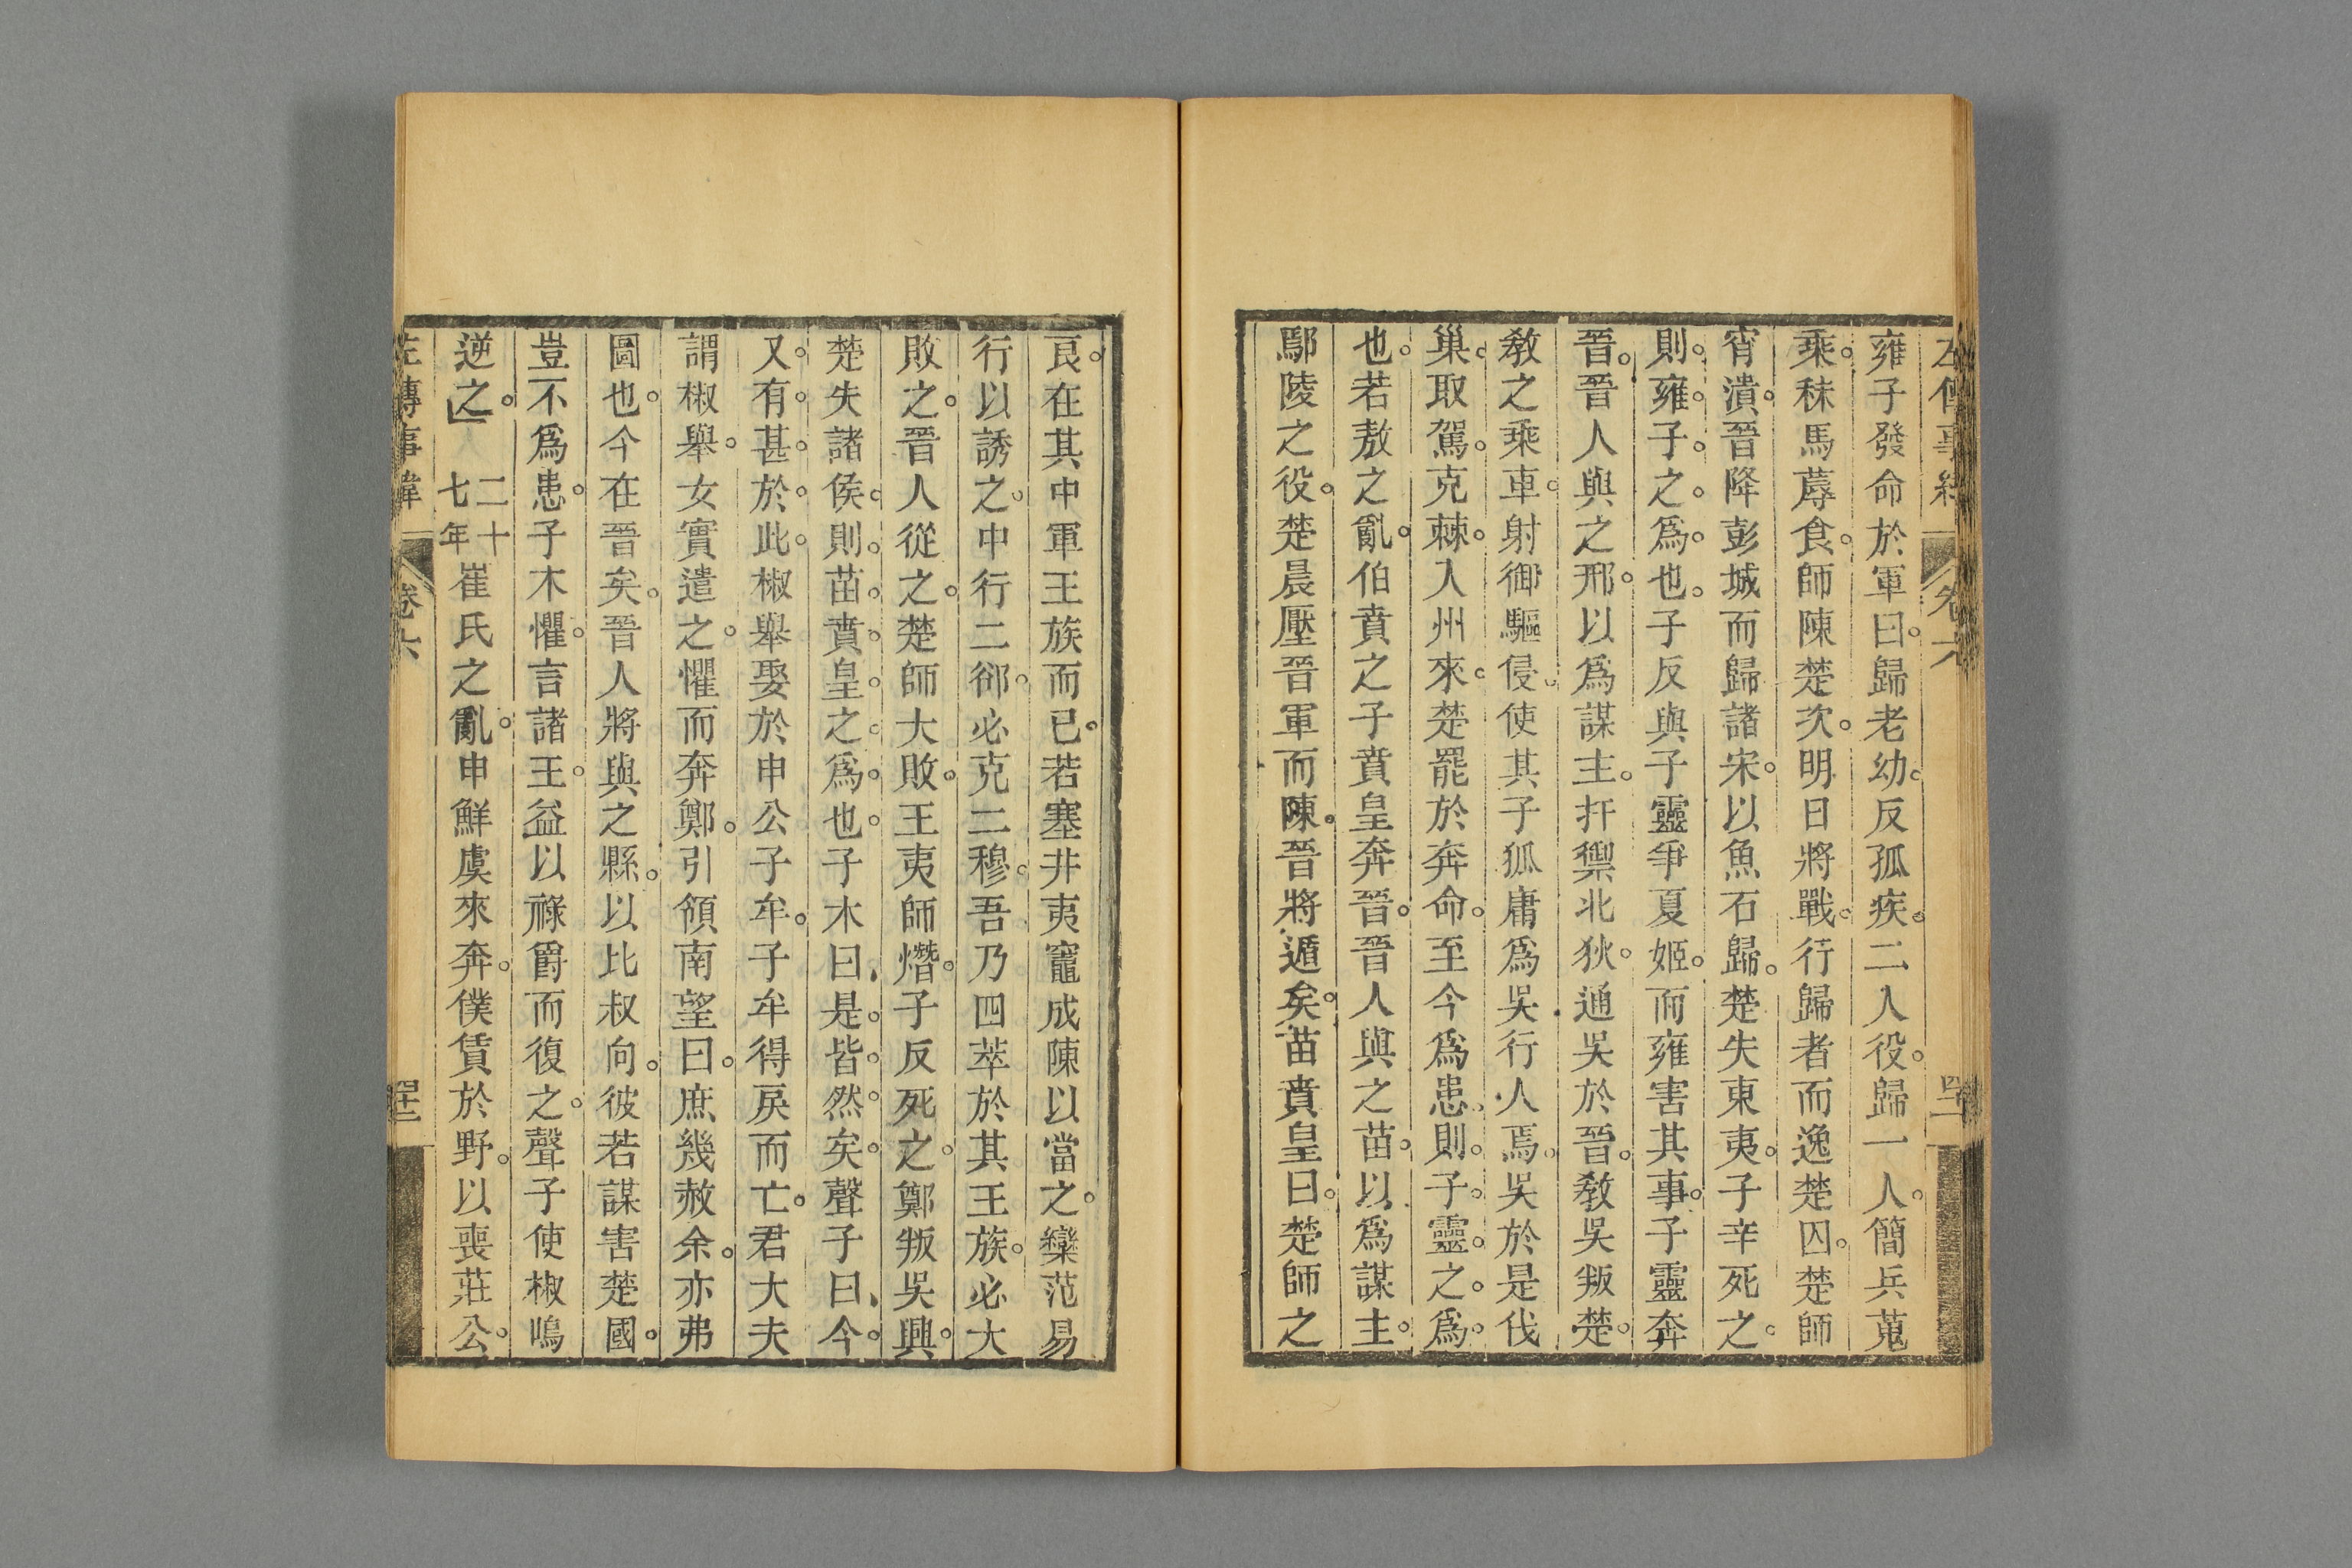 雍子發命於軍曰歸老幼反孤疾二人役歸一人簡兵蒐
乘秣馬蓐食師陳楚次明日將戰行歸者而逸楚囚楚師
宵潰晉降彭城而歸諸宋以魚石歸楚失東夷子辛死之
則雍子之爲也子反與子靈爭夏姬而雍害其事子靈奔
晉晉人與之邢以爲謀主扞禦北狄通吳於晉敎吳叛楚
敎之乘車射御驅侵使其子狐庸爲吳行人焉吳於是伐
巢取駕克棘入州來楚罷於奔命至今爲患則子靈之爲
也若敖之亂伯賁之子賁皇奔晉晉人與之苗以爲謀主
鄢陵之役楚晨壓晉軍而陳晉將遁矣苗賁皇曰楚師之
良在其中軍王族而已若塞井夷竈成陳以當之欒范易
行以誘之中行二郤必克二穆吾乃四萃於其王族必大
敗之晉人從之楚師大敗王夷師熸子反死之鄭叛吳興
楚失諸侯則苗賁皇之爲也子木曰是皆然矣聲子曰今
又有甚於此椒舉娶於申公子牟子牟得戾而亡君大夫
謂椒舉女實遣之懼而奔鄭引領南望曰庶幾赦余亦弗
圖也今在晉矣晉人將與之縣以比叔向彼若謀害楚國
豈不爲患子木懼言諸王益以祿爵而復之聲子使椒鳴
逆之二十七年崔氏之亂申鮮虞來奔僕賃於野以喪莊公
左傳事緯 卷六